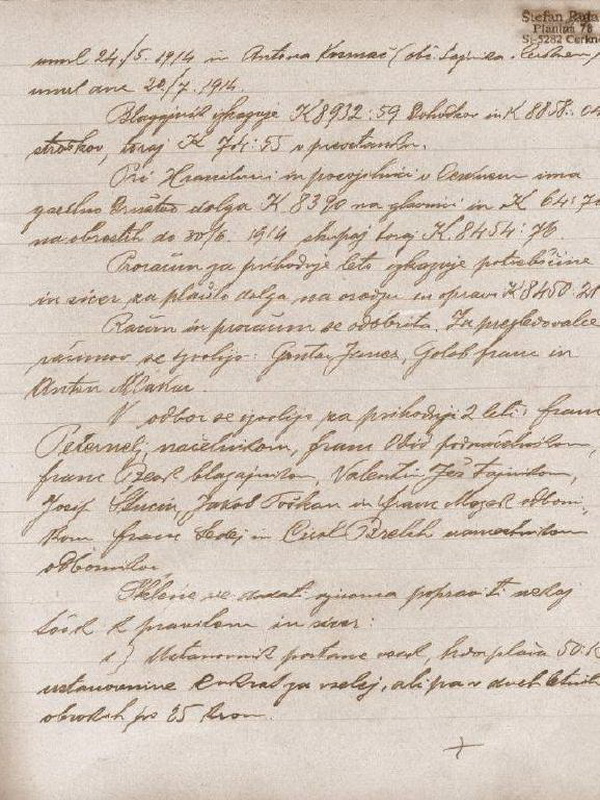 Štefan Rutar
Planina 78
SI-5282 Cerkno
umrl 24./5. 1914 in Antona Kosmač (obč. tajnika, Cerkno,
umrl dne 28./7. 1914.
Blagajnik izkazuje K 8932:59 dohodkov in K 8858:04
stroškov, toraj K 74:55 v preostanku.
Pri Hranilnici in posojilnici v Cerknem ima
gasilno društvo dolga K 8390 na glavnici in K 64:76
na obrestih do 30/6. 1914 skupaj toraj K 8454:76
Proračun za prihodnje leto izkazuje potrebščine
in sicer za plačilo dolga na orodju in opravi K 8450.21
Račun in proračun se odobrita. Za pregledovalce
računov se izvolijo: Janez, Golob Franc in
Anton Mlakar.
V odbor se izvolijo za prihodnji 2 leti: Franc
Peternelj, načelnikom, Franc Obid podnačelnikom,
Franc Bevk blagajnikom, Valentin Jež tajnikom,
Josip Štucin, Jakob Točkan in Franc Mazek odborni-
kom Franc Sedej in Ciril Brelih namestnikom
odbornikov.
Sklene se dodati oziroma popraviti nekaj
točk k pravilom in sicer:
1) Ustanovnik postane vsak, kdor plača 50 K
ustanovnine enkrat za vselej, ali pa v dveh letnih
obrokih po 25 kron.